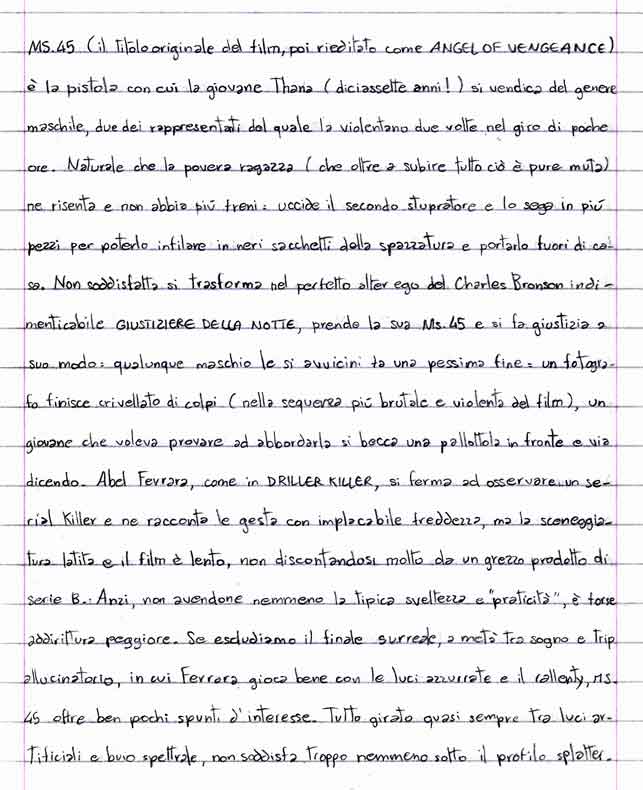 MS.45 (il titolo originale del film, poi rieditato come ANGEL OF VENGEANCE)
è la pistola con cui la giovane Thana (diciassette anni!) si vendica del genere
maschile, due dei rappresentati dal quale la violentano due volte nel giro di poche
ore. Naturale che la povera ragazza (che oltre a subire tutto ciò è pure muta)
ne risenta e non abbia più freni: uccide il secondo stupratore e lo sega in più
pezzi per poterlo infilare in neri sacchetti della spazzatura e portarlo fuori di ca-
sa. Non soddisfatta si trasforma nel perfetto alter ego del Charles Bronson indi-
menticabile GIUSTIZIERE DELLA NOTTE, prende la sua Ms.45 e si fa giustizia a
suo modo: qualunque maschio le si avvicini fa una pessima fine: un fotogra-
fo finisce crivellato di colpi (nella sequenza più brutale e violenta del film), un
giovane che voleva provare ad abbordarla si becca una pallottola in fronte e via
dicendo. Abel Ferrara, come in DRILLER KILLER, si ferma ad osservare un se-
rial Killer e ne racconta le gesta con implacabile freddezza, ma la sceneggia-
tura latita e il film è lento, non discontandosi molto da un grezzo prodotto di
serie B.: Anzi, non avendone nemmeno la tipica sveltezza e "praticità", è forse
addirittura peggiore. Se escludiamo il finale surreale, a metà tra sogno e trip
allucinatorio, in cui Ferrara gioca bene con le luci azzurrate e il rallenty, MS.
45 offre ben pochi spunti d'interesse. Tutto girato quasi sempre tra luci ar-
tificiali e buio spettrale, non soddisfa troppo nemmeno sotto il profilo splatter.